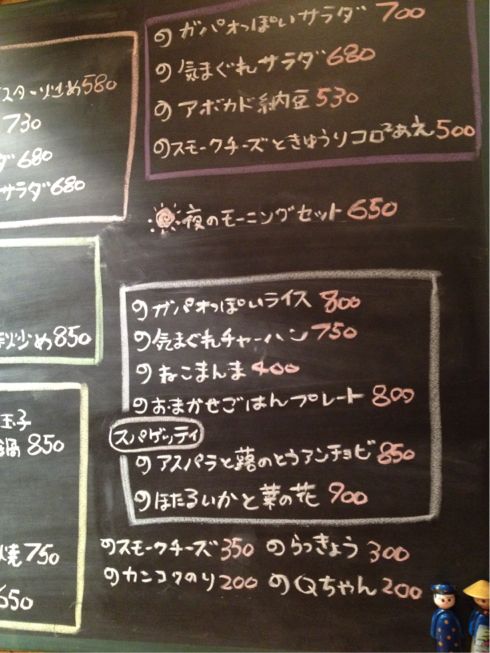 スター炒め580
730
ダ680
サラダ680
のガパオっぽいサラダ 700
の気まぐれサラダ 680
のアボカド納豆530
のスモークチーズときゅうりコロコロあえ500
夜のモーニングセット650
炒め850
玉子
鍋850
焼750
650
のガパオっぽいライス 800
の気まぐれチャーハン750
のねこまんま400
のおまかせごはんプレート 800
スパゲッティ
のアスパラと蕗のとうアンチョビ850
のほたるいかと菜の花 900
のスモークチーズ350 のらっきょう 300
のカンコクのり200 のQちゃん200